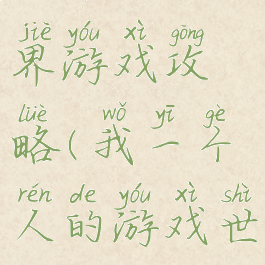 jiè yóu xì gōng
界游戏攻
lüè wǒ yī gè
略(我一个
rén de yóu xì shì
人的游戏世